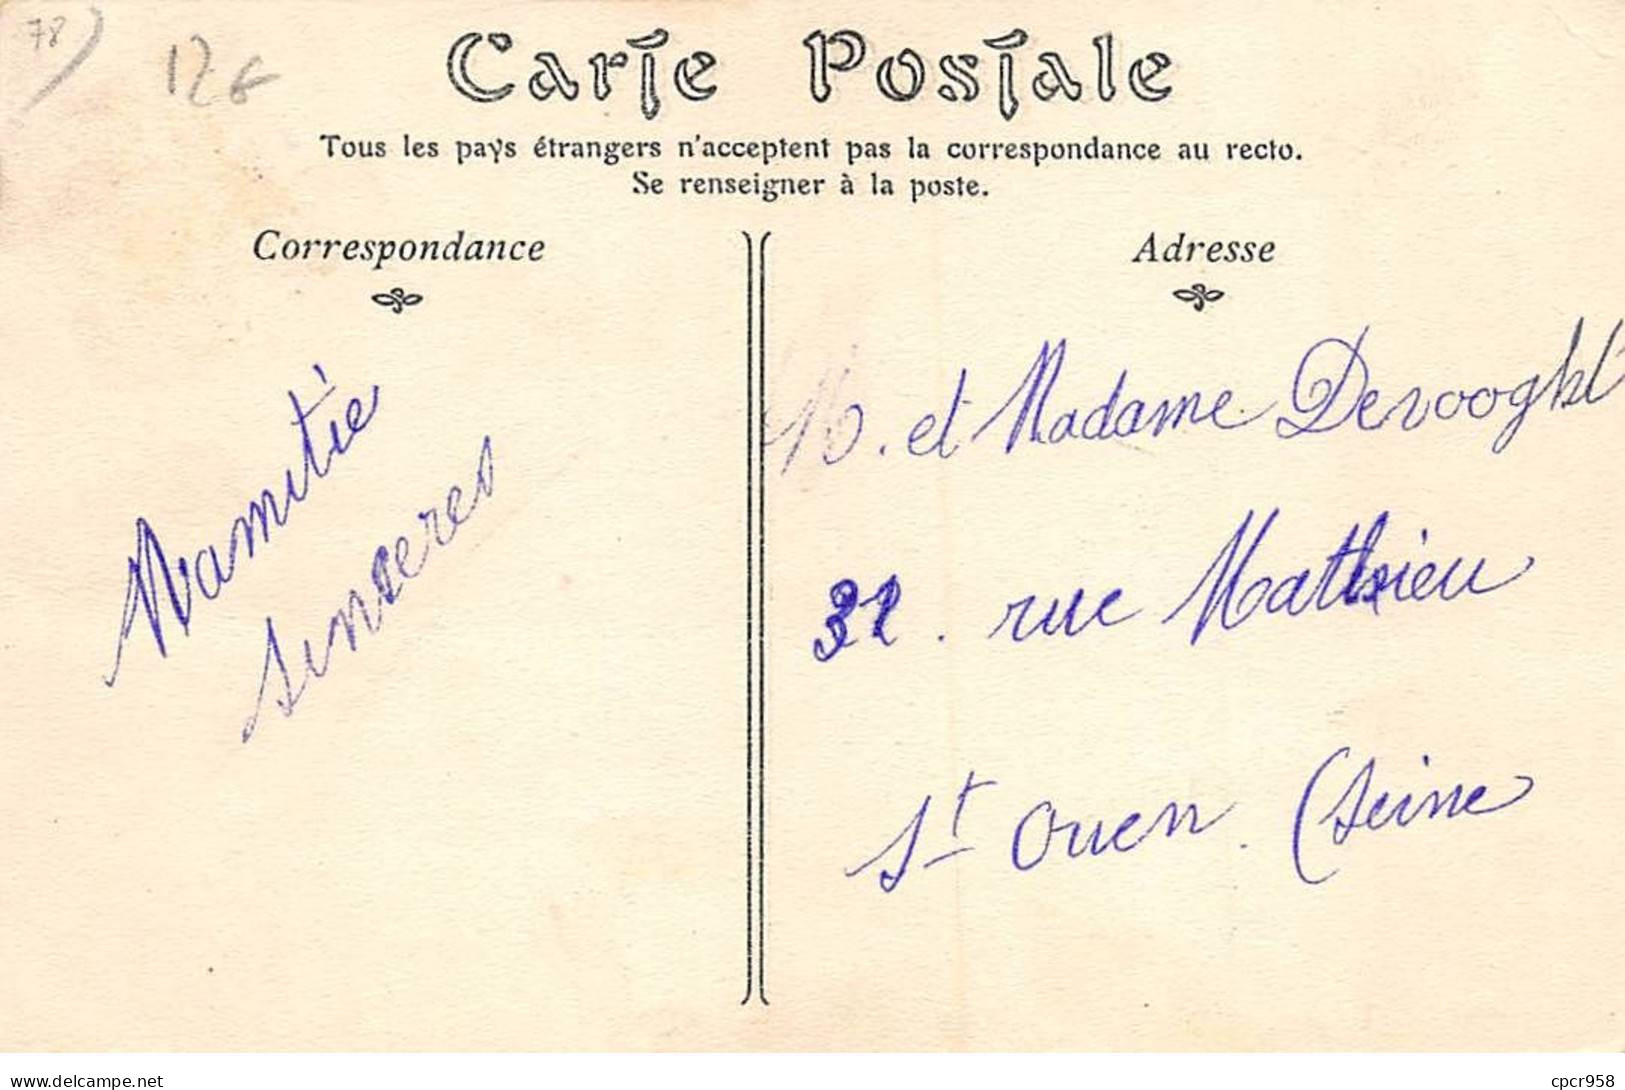 78)
12€
Carte Postale
Tous les pays étrangers n'acceptent pas la correspondance au recto.
Se renseigner à la poste.
Correspondance
Adresse
amitié
sinceres
M. et Madame Devooght
32. rue Mathieu
St Ouen. (Seine
www.delcampe.net
cpcr958